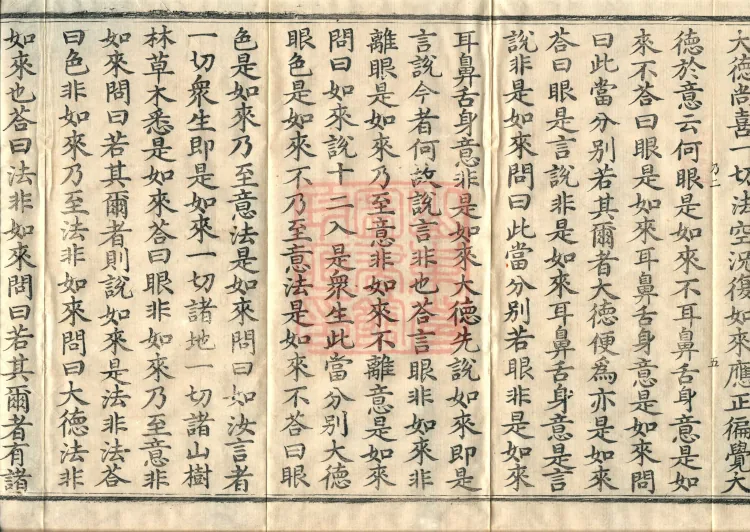 大德尚喜一切法空況復如來應正徧覺大
德於意云何眼是如來不耳鼻舌身意是如
來不荅曰眼是如來耳鼻舌身意是如來問
曰此當分別若其爾者大德便為亦是如來
荅曰眼是言說非是如來耳鼻舌身意是言
說非是如來問曰此當分別若眼非是如來
耳鼻舌身意非是如來大德先說如來即是
言說今者何故說言非也荅言眼非如來非
離眼是如來乃至意非如來不離意是如來
問曰如來說十二入是衆生此當分別大德
眼色是如來不乃至意法是如來不荅曰眼
色是如來乃至意法是如來問曰如汝言者
一切衆生即是如來一切諸地一切諸山樹
林草木悉是如來荅曰眼非如來乃至意非
如來問曰若其爾者則說如來是法非法荅
曰色非如來乃至法非如來問曰大德法非
如來也荅曰法非如來問曰若其爾者有諸
乃一
五